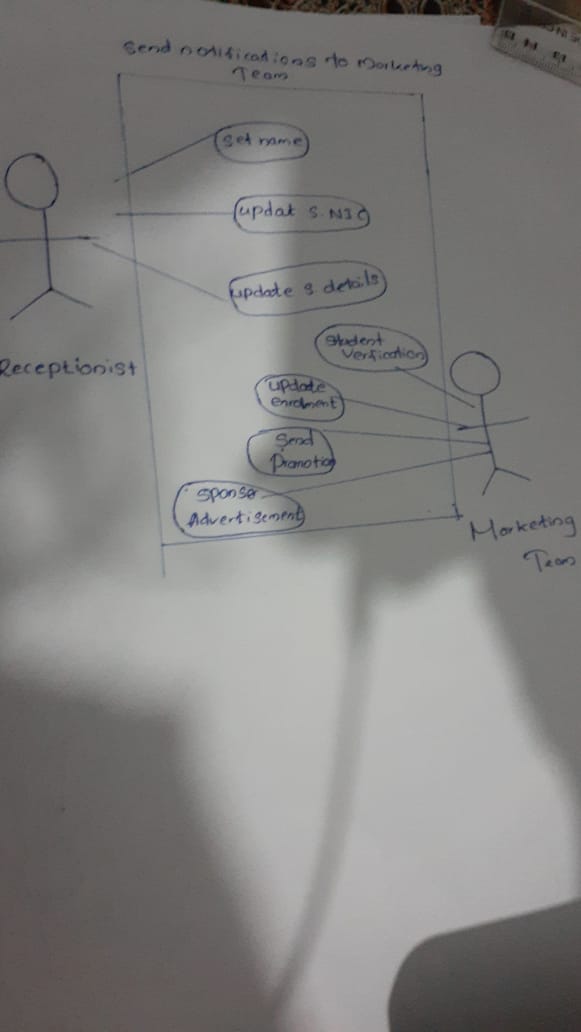 Send notifications to Marketing
Team
Set name
updat S.NIC
update s details
Receptionist
Student
Verfication
update
enrolment
Send
Promotio
Sponser
Advertisement
Marketing
Team